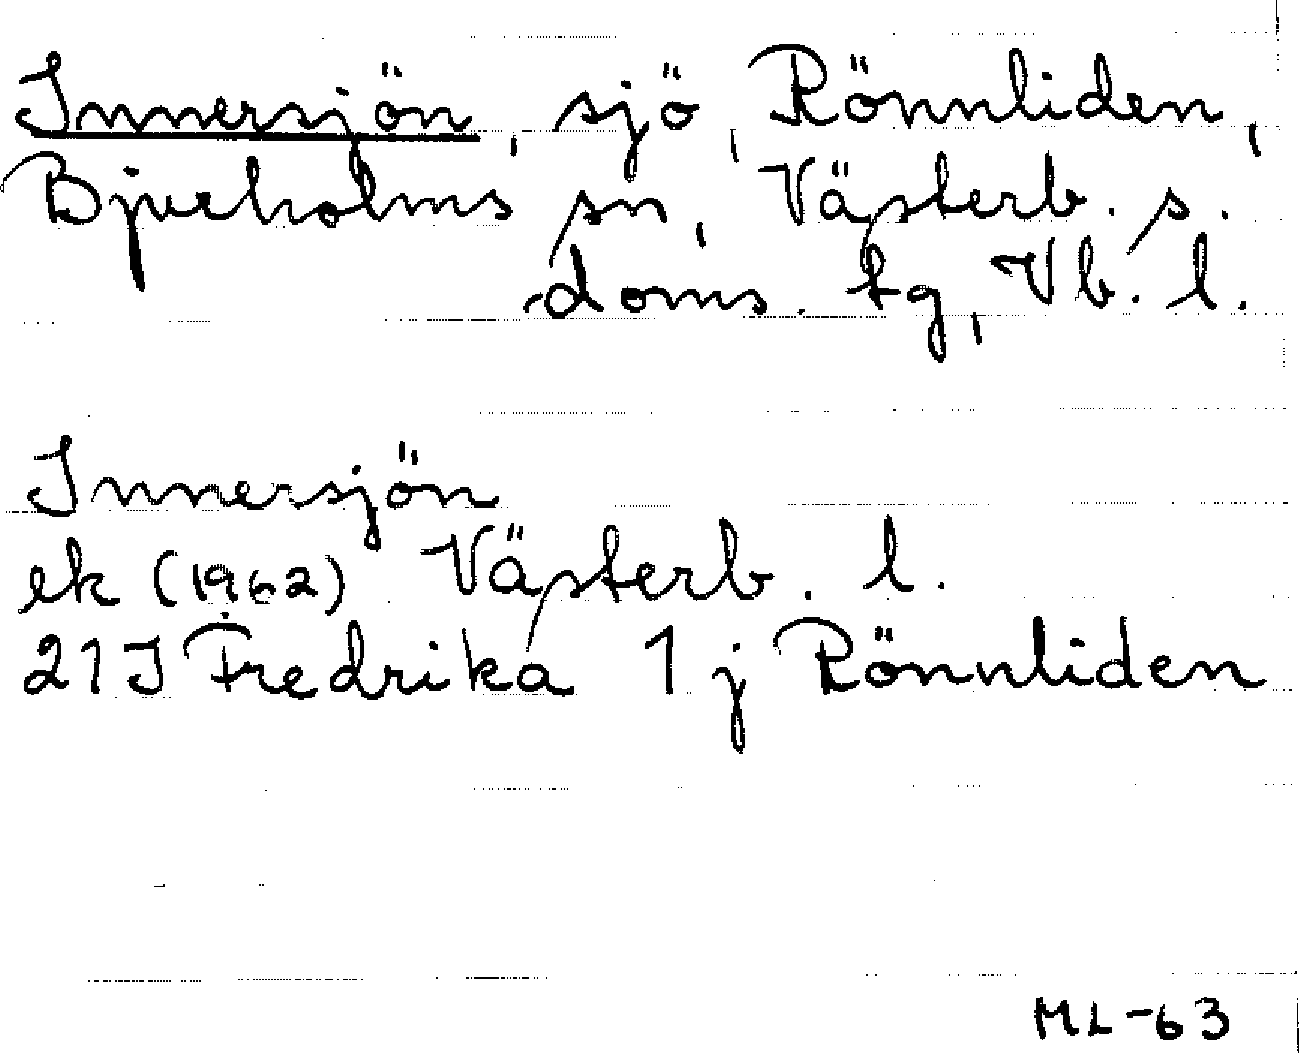 Innersjön, sjö, Rönnliden,
Bjurholms sn, Västerb. s.
doms. tg, Vb. l.
Innersjön
ek (1962) Västerb. l.
21 J Fredrika 1 j Rönnliden
ML-63